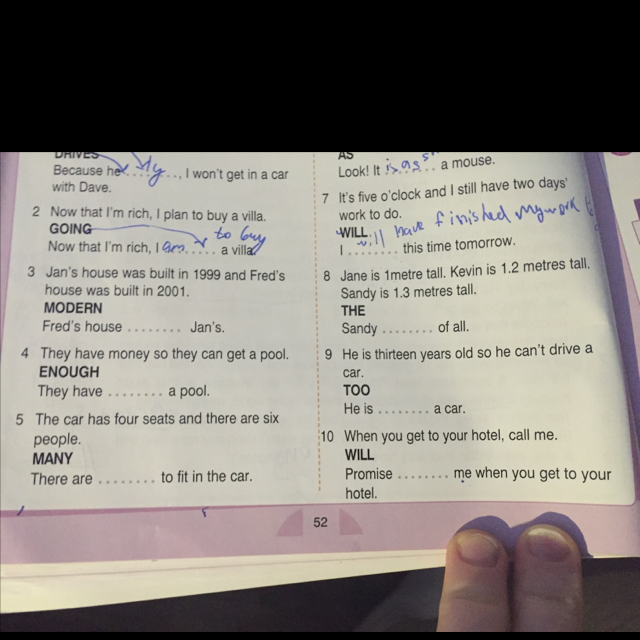 DRIVES
Because he ........, I won't get in a car
with Dave.
2 Now that I'm rich, I plan to buy a villa.
GOING to buy
Now that I'm rich, I am ...... a villa.
3 Jan's house was built in 1999 and Fred's
house was built in 2001.
MODERN
Fred's house ........ Jan's.
4 They have money so they can get a pool.
ENOUGH
They have ........ a pool.
5 The car has four seats and there are six
people.
MANY
There are ........ to fit in the car.
AS
Look! It is as ...... a mouse.
7 It's five o'clock and I still have two days'
work to do.
WILL will have finished my work
I ........ this time tomorrow.
8 Jane is 1metre tall. Kevin is 1.2 metres tall.
Sandy is 1.3 metres tall.
THE
Sandy ........ of all.
9 He is thirteen years old so he can't drive a
car.
TOO
He is ........ a car.
10 When you get to your hotel, call me.
WILL
Promise ........ me when you get to your
hotel.
52